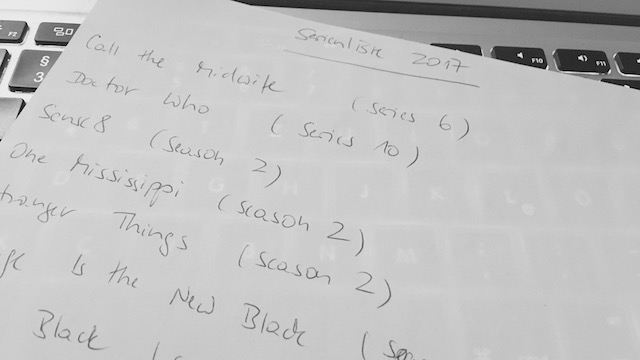 Serienliste 2017
Call the Midwife (Series 6)
Doctor Who (Series 10)
Sense8 (Season 2)
One Mississippi (Season 2)
tranger Things (Season 2)
Is the New Black
Black
F2
§
3
F10
F11